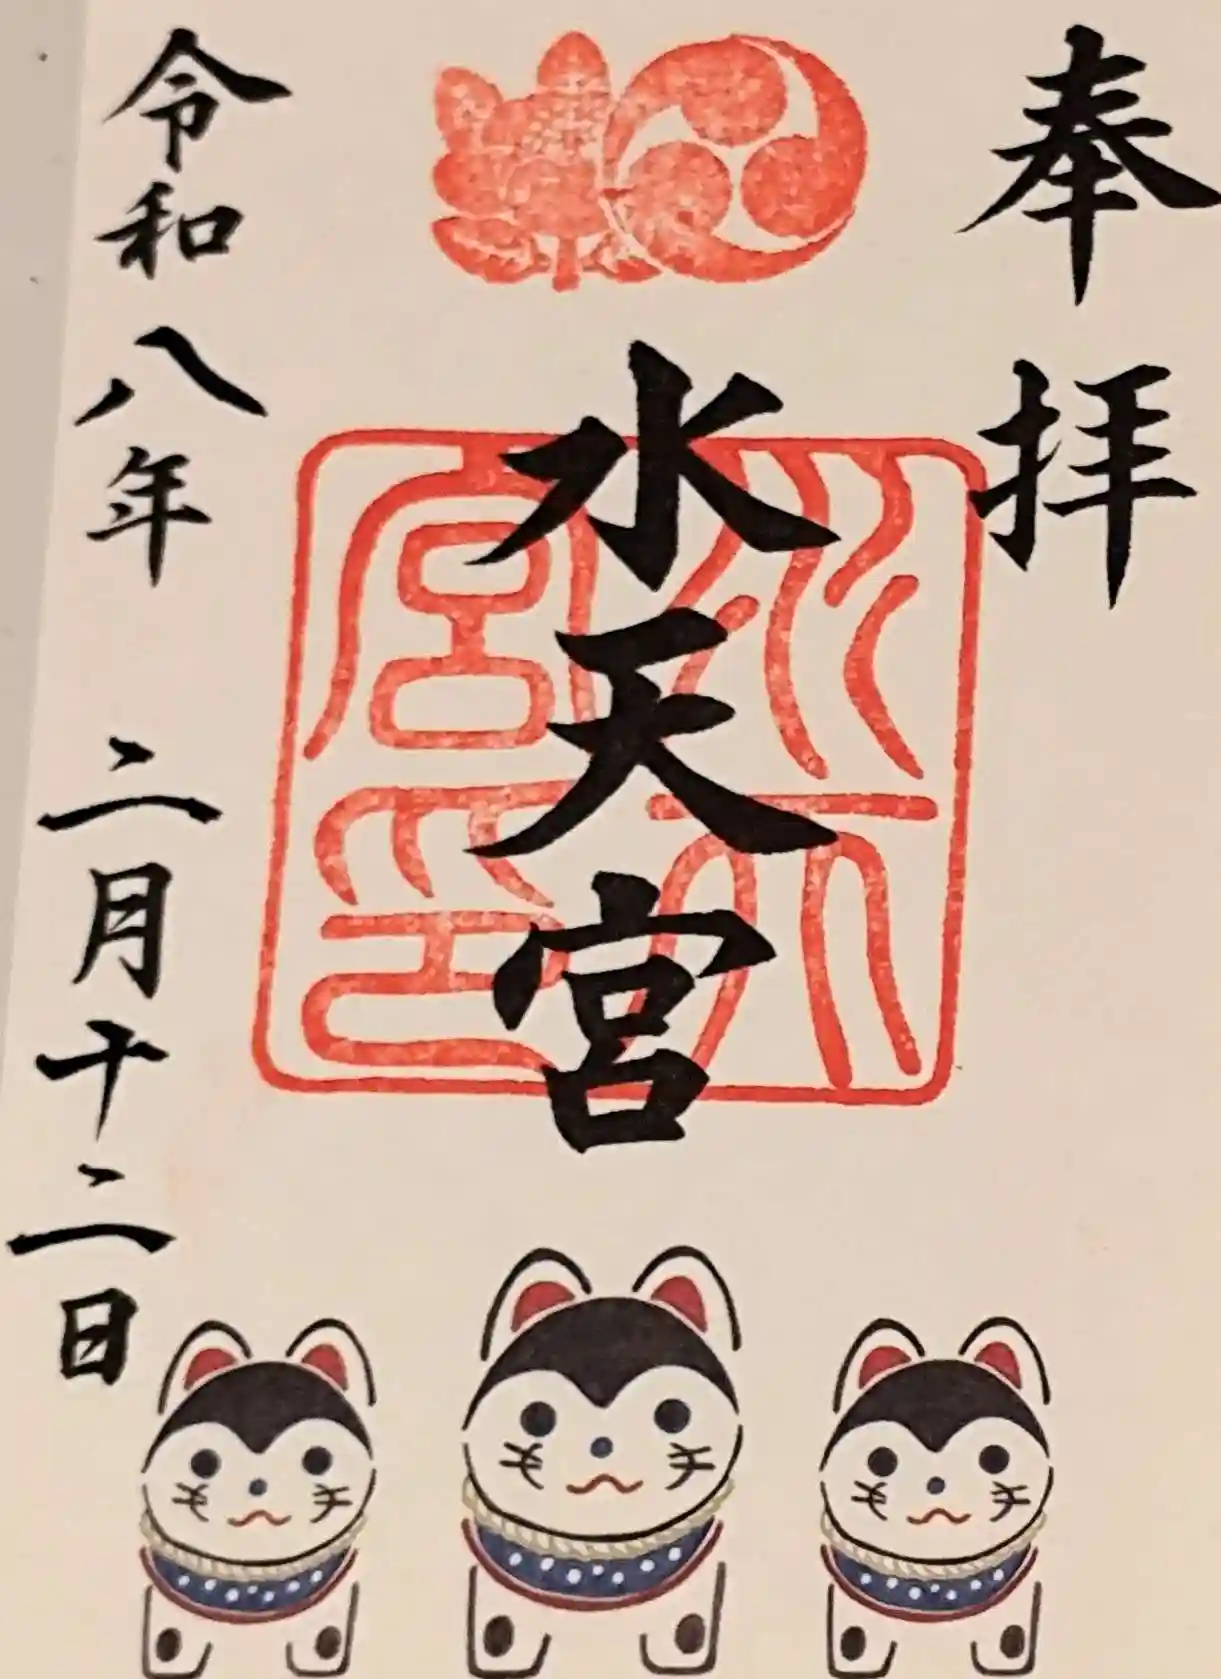 奉拝
水天宮
水天宮印
令和八年 二月十二日